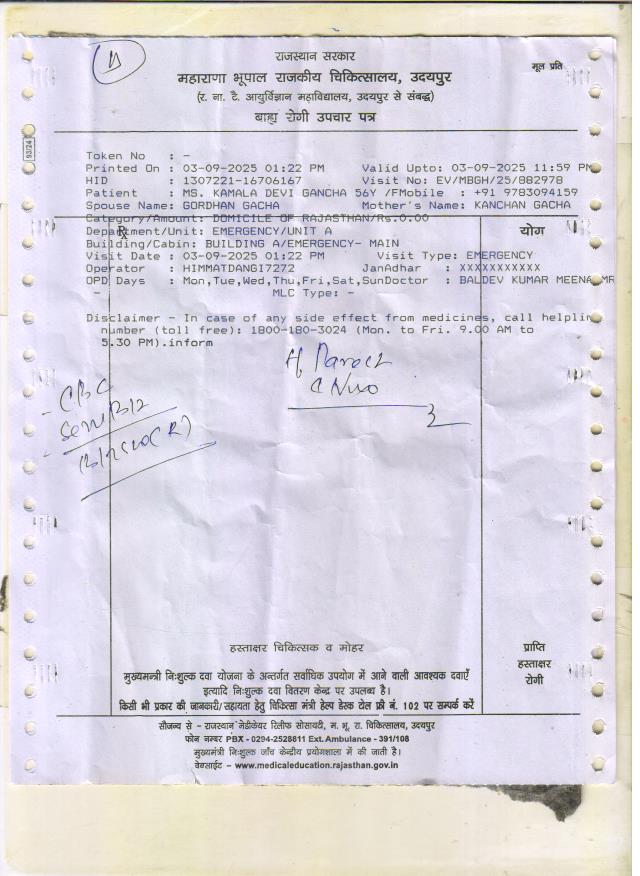 राजस्थान सरकार
मूल प्रति
महाराणा भूपाल राजकीय चिकित्सालय, उदयपुर
(र. ना. टै. आयुर्विज्ञान महाविद्यालय, उदयपुर से संबद्ध)
बाह्य रोगी उपचार पत्र
93/24
Token No : -
Printed On : 03-09-2025 01:22 PM Valid Upto: 03-09-2025 11:59 PM
HID : 1307221-16706167 Visit No: EV/MBGH/25/882978
Patient : MS. KAMALA DEVI GANCHA 56Y /FMobile : +91 9783094159
Spouse Name: GORDHAN GACHA Mother's Name: KANCHAN GACHA
Category/Amount: DOMICILE OF RAJASTHAN/Rs.0.00
Department/Unit: EMERGENCY/UNIT A
योग
Building/Cabin: BUILDING A/EMERGENCY- MAIN
Visit Date : 03-09-2025 01:22 PM Visit Type: EMERGENCY
Operator : HIMMATDANGI7272 JanAdhar : XXXXXXXXXXX
OPD Days : Mon,Tue,Wed,Thu,Fri,Sat,SunDoctor : BALDEV KUMAR MEENA MR
- MLC Type: -
Disclaimer - In case of any side effect from medicines, call helplin
number (toll free): 1800-180-3024 (Mon. to Fri. 9.00 AM to
5.30 PM).inform
- CBC
हस्ताक्षर चिकित्सक व मोहर
प्राप्ति
हस्ताक्षर
रोगी
मुख्यमन्त्री निःशुल्क दवा योजना के अन्तर्गत सर्वाधिक उपयोग में आने वाली आवश्यक दवाएँ
इत्यादि निःशुल्क दवा वितरण केन्द्र पर उपलब्ध है।
किसी भी प्रकार की जानकारी/सहायता हेतु चिकित्सा मंत्री हेल्प डेस्क टोल फ्री नं. 102 पर सम्पर्क करें
सौजन्य से - राजस्थान मेडीकेयर रिलीफ सोसायटी, म. भू. रा. चिकित्सालय, उदयपुर
फोन नम्बर PBX - 0294-2528811 Ext. Ambulance - 391/108
मुख्यमंत्री निःशुल्क जाँच केन्द्रीय प्रयोगशाला में की जाती है।
वेबसाईट – www.medicaleducation.rajasthan.gov.in